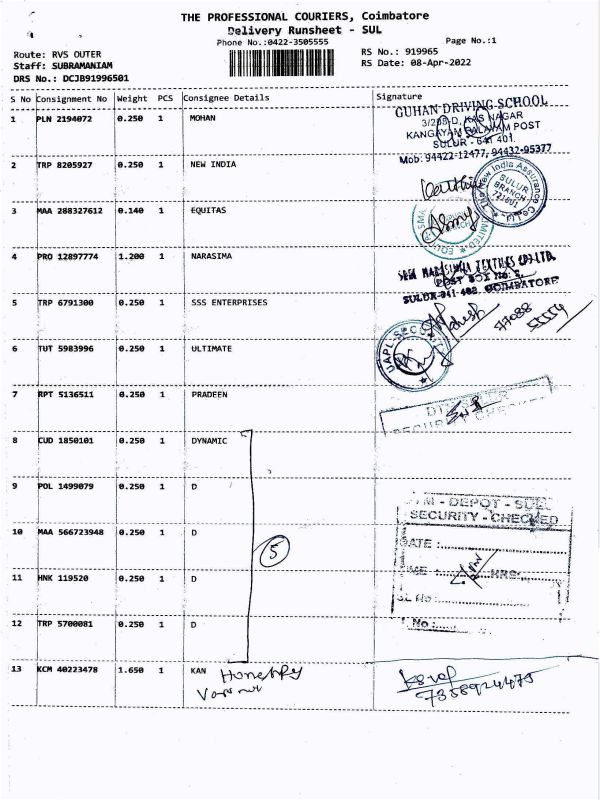 THE PROFESSIONAL COURIERS, Coimbatore
Delivery Runsheet - SUL
Phone No.:0422-3505555
Page No.:1
Route: RVS OUTER
RS No.: 919965
Staff: SUBRAMANIAM
RS Date: 08-Apr-2022
DRS No.: DCJB91996501
S No Consignment No Weight PCS Consignee Details Signature
1 PLN 2194072 0.250 1 MOHAN
GUHAN DRIVING SCHOOL
KANGAYAM PALAYAM POST
SULUR - 641 401.
Mob: 94422-12477, 94432-95377
2 TRP 8205927 0.250 1 NEW INDIA
The New India Assurance Co. Ltd
SULUR
BRANCH
721601
3 MAA 288327612 0.140 1 EQUITAS
4 PRO 12897774 1.200 1 NARASIMA
SRI NARASIMHA TEXTILES (P) LTD.
SULUR-641 402. COIMBATORE
5 TRP 6791300 0.250 1 SSS ENTERPRISES
6 TUT 5983996 0.250 1 ULTIMATE
UAPL-SECURITY
7 RPT 5136511 0.250 1 PRADEEN
8 CUD 1850101 0.250 1 DYNAMIC
9 POL 1499079 0.250 1 D
DEPOT - SULUR
SECURITY - CHECKED
10 MAA 566723948 0.250 1 D
5
DATE :
11 HNK 119520 0.250 1 D
TIME : HRS:
SL No :
12 TRP 5700081 0.250 1 D
No :
13 KCM 40223478 1.650 1 KAN
7358924475